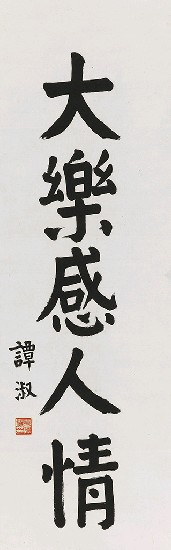 大樂感人情
譚淑